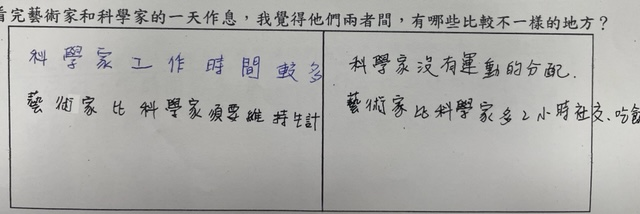 看完藝術家和科學家的一天作息，我覺得他們兩者間，有哪些比較不一樣的地方？
科學家工作時間較多
藝術家比科學家須要維持生計
科學家沒有運動的分配.
藝術家比科學家多2小時社交、吃飯